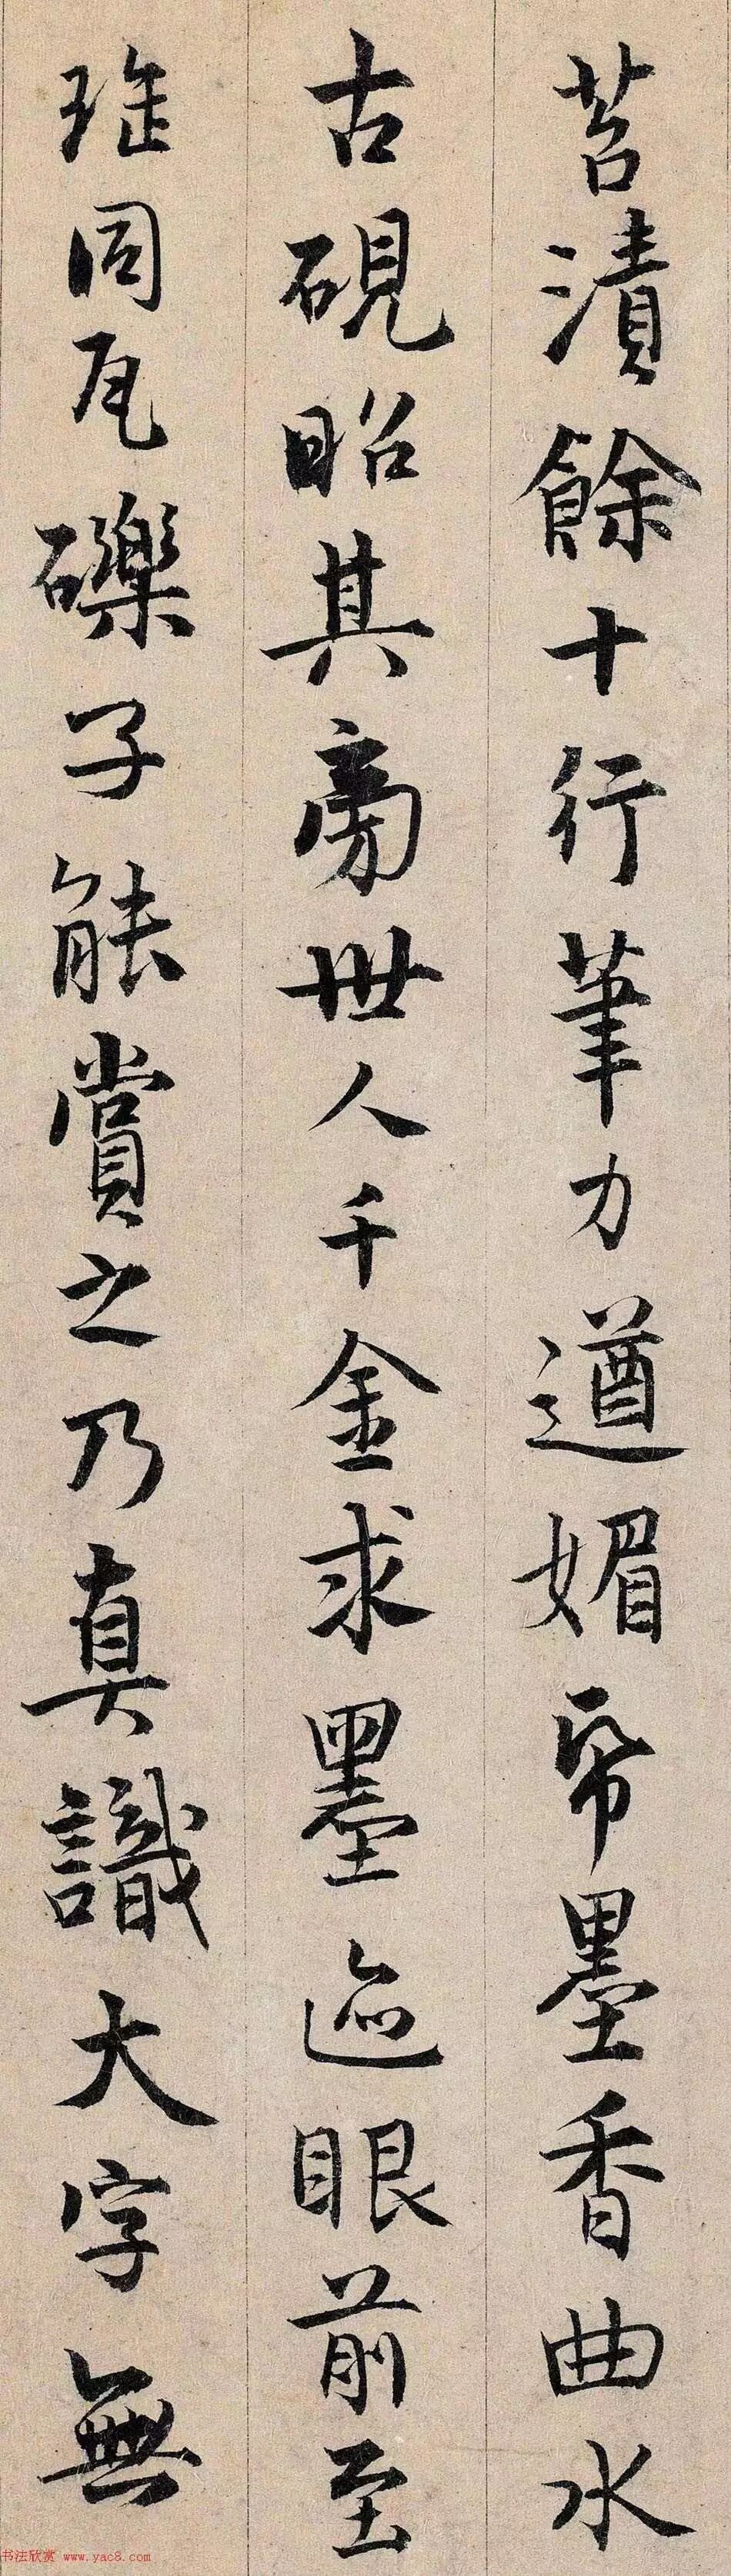 苔漬餘十行筆力遒媚帋墨香曲水
古硯昭其旁世人千金求墨迹眼前至
珤同瓦礫子能賞之乃真識大字無
书法欣赏 www.yac8.com